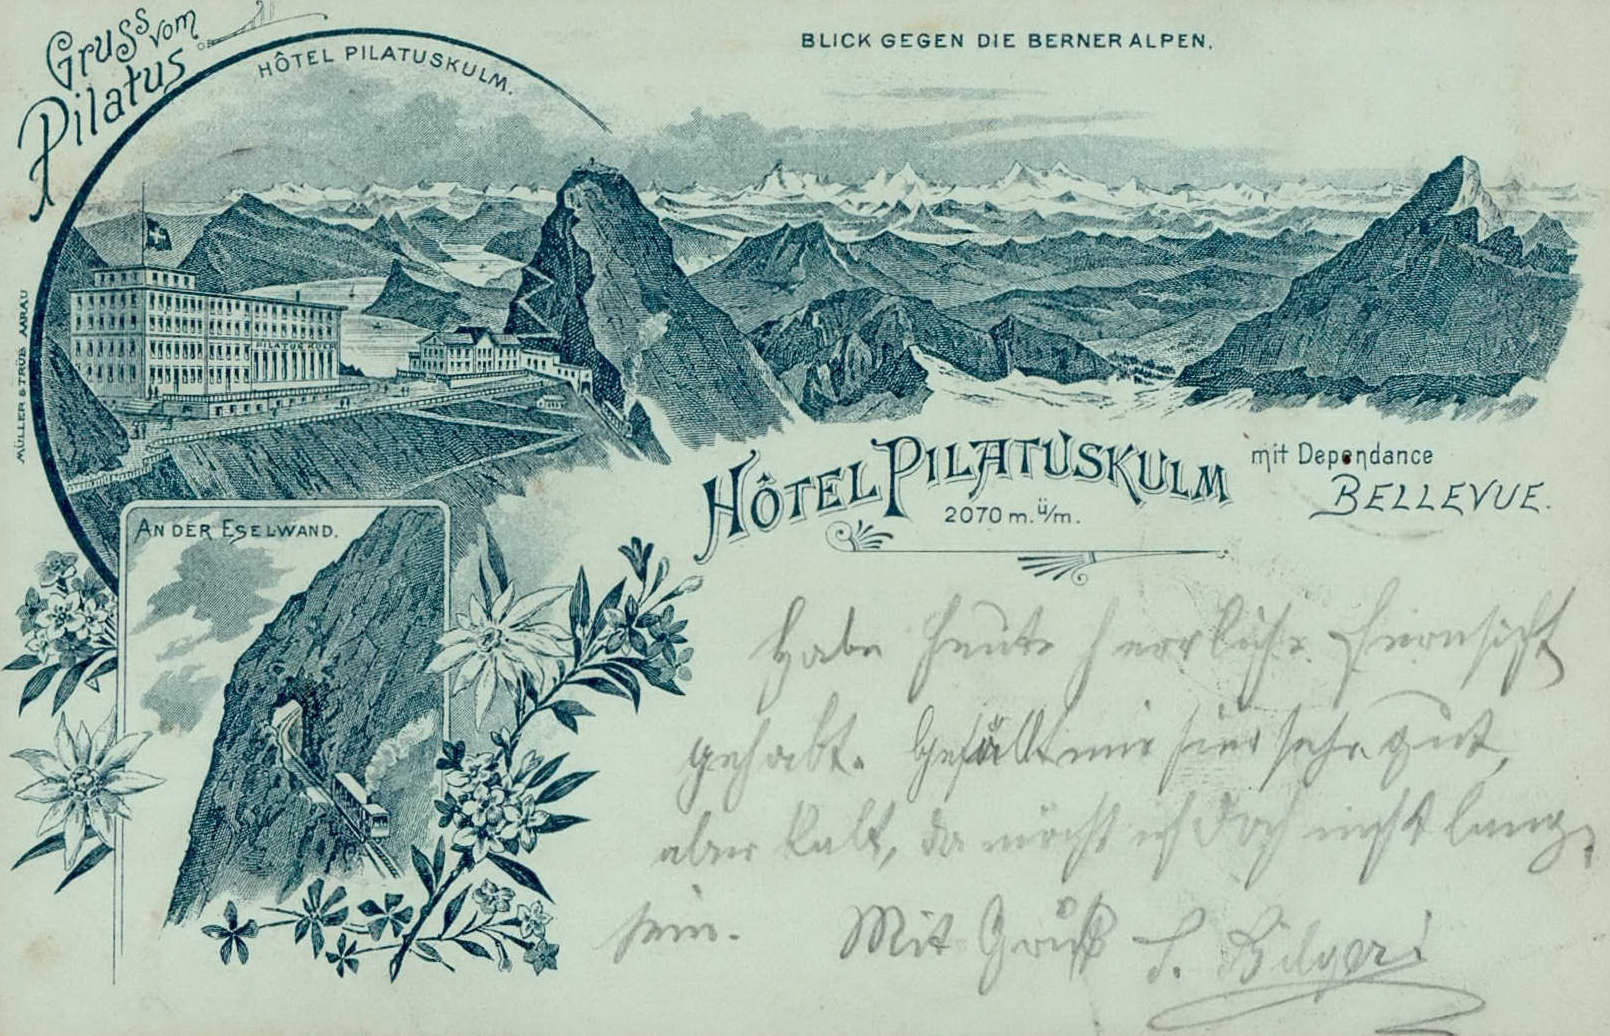 Gruss vom
Pilatus
HÔTEL PILATUSKULM.
BLICK GEGEN DIE BERNER ALPEN.
PILATUS KULM
MÜLLER & TRÜB AARAU
HÔTEL PILATUSKULM
2070 m. ü/m.
mit Dependance
BELLEVUE.
AN DER ESELWAND.
Habe heute herrliche Fernsicht
gehabt. Gefällt mir hier sehr gut,
aber kalt, da möcht ich doch nicht lang
sein. Mit Gruß